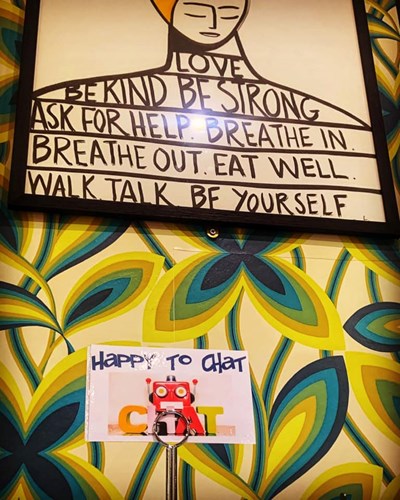 LOVE
BE KIND BE STRONG
ASK FOR HELP. BREATHE IN.
BREATHE OUT. EAT WELL.
WALK. TALK. BE YOURSELF
HAPPY TO CHAT
CHAT